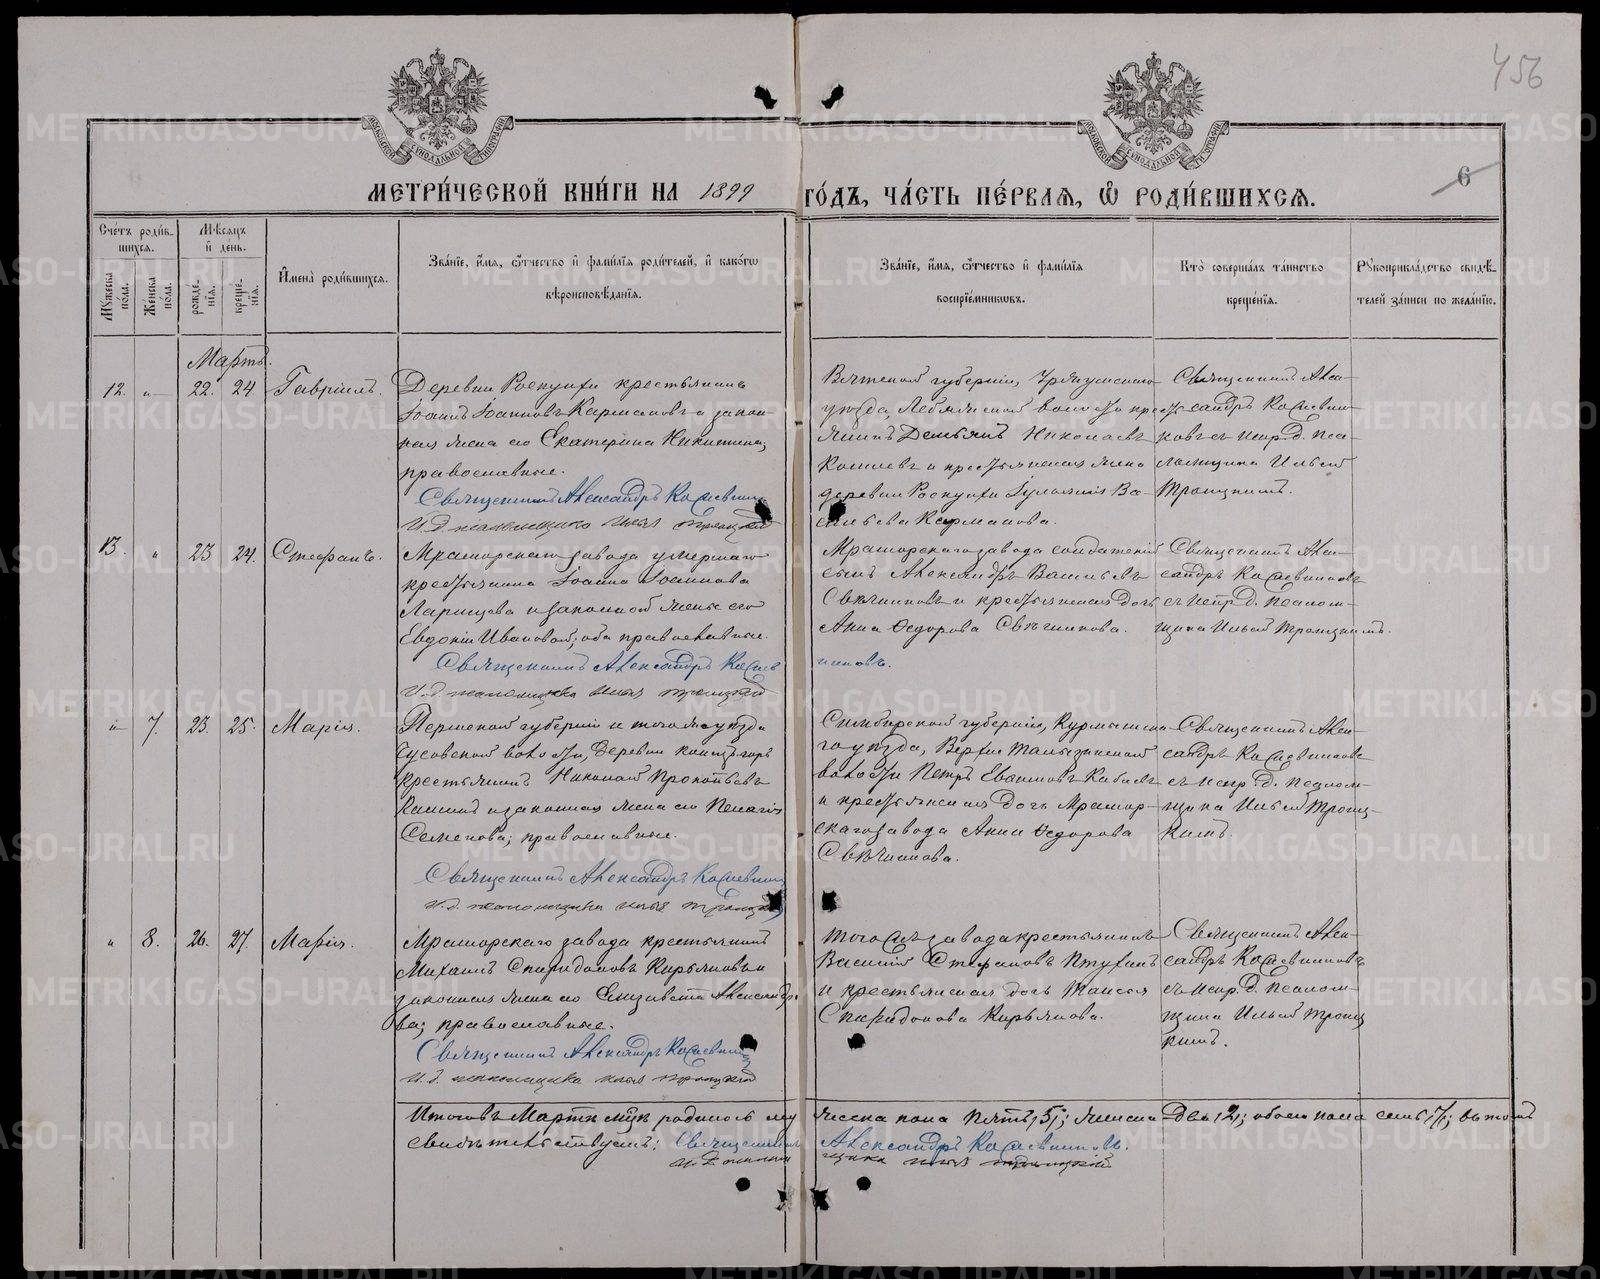 456
6
МОСКОВСКОЙ СѴНОДАЛЬНОЙ ТИПОГРАФІИ
МОСКОВСКОЙ СѴНОДАЛЬНОЙ ТИПОГРАФІИ
МЕТРИ́ЧЕСКОЙ КНИ́ГИ НА 1899 ГО́ДЪ, ЧА́СТЬ ПЕ́РВАЯ, Ѡ РОДИ́ВШИХСЯ.
Сче́тъ роди́вшихся.
Мꙋжеска пола.
Женска пола.
Мѣсяцъ и̂ де́нь.
рожденія.
крещенія.
И̂мена̀ роди́вшихся.
Зва́ніе, и̂́мя, ѻ̂́тчество и̂ фами́лія роди́телей, и̂ како́гѡ
вѣроисповѣ́данія.
Зва́ніе, и̂́мя, ѻ̂́тчество и̂ фами́лія
воспріе́мниковъ.
Кто̀ соверша́лъ та́инство
креще́нія.
Рꙋкоприкла́дство свидѣ́-
телей за́писи по жела́нію.
Мартъ.
12. " 22. 24. Гавріилъ.
Деревни Роскухи крестьянинъ
Іоаннъ Іоанновъ Кармановъ и закон-
ная жена его Екатерина Никитина,
православные.
Священникъ Александръ Ко
И.д. псаломщика Илья Троицкій
Вятской губерніи, Уржумскаго
уѣзда, Лебяжской волости крест-
янинъ Демьянъ Николаевъ
и крестьянская жена
деревни Роскухи Ва-
сильева Карманова.
Священникъ Алек-
сандръ
съ испр. д. пса-
ломщика Ильей
Троицкимъ.
13. " 23 24. Стефанъ.
Мраморскаго завода умершаго
крестьянина Іоанна Іоаннова
Ларинцева и законной жены его
Евдокіи Ивановой, оба православные.
Священникъ Александръ
И.д. псаломщика Илья Троицкій
Мраморскаго завода солдатскій
сынъ Александръ Васильевъ
Свѣчниковъ и крестьянская дочь
Анна Ѳедорова Свѣчникова.
никовъ.
Священникъ Алек-
сандръ
съ испр. д. псалом-
щика Ильей Троицкимъ.
" 7. 23. 25. Марія.
Пермской губерніи и того же уѣзда
волости, деревни
крестьянинъ Николай Прокопьевъ
и законная жена его Пелагія
Семенова; православные.
Священникъ Александръ
И.д. псаломщика Илья Троицкій
Симбирской губерніи, Курмышска-
го уѣзда, Верхне Талызинской
волости Петръ Евдимовъ
и крестьянская дочь Мрамор-
скаго завода Анна Ѳедорова
Свѣчникова.
Священникъ Алек-
сандръ
съ испр. д. псалом-
щика Ильей Троиц-
кимъ.
" 8. 26. 27. Марія.
Мраморскаго завода крестьянинъ
Михаилъ Спиридоновъ Кирьяновъ и
законная жена его Елизавета Александро-
ва; православные.
Священникъ Александръ
И.д. псаломщика Илья Троицкій
Того же завода крестьянинъ
Василій Стефановъ Птухинъ
и крестьянская дочь Таисія
Спиридонова Кирьянова.
Священникъ Алек-
сандръ
съ испр. д. псалом-
щика Ильей Троиц-
кимъ.
Итого въ Мартѣ мцѣ родилось му жеска пола пять /5/; женска два /2/; обоего пола семь /7/; въ томъ
свидѣтельствуемъ: Священникъ Александръ
И.д. псаломщика Илья Троицкій